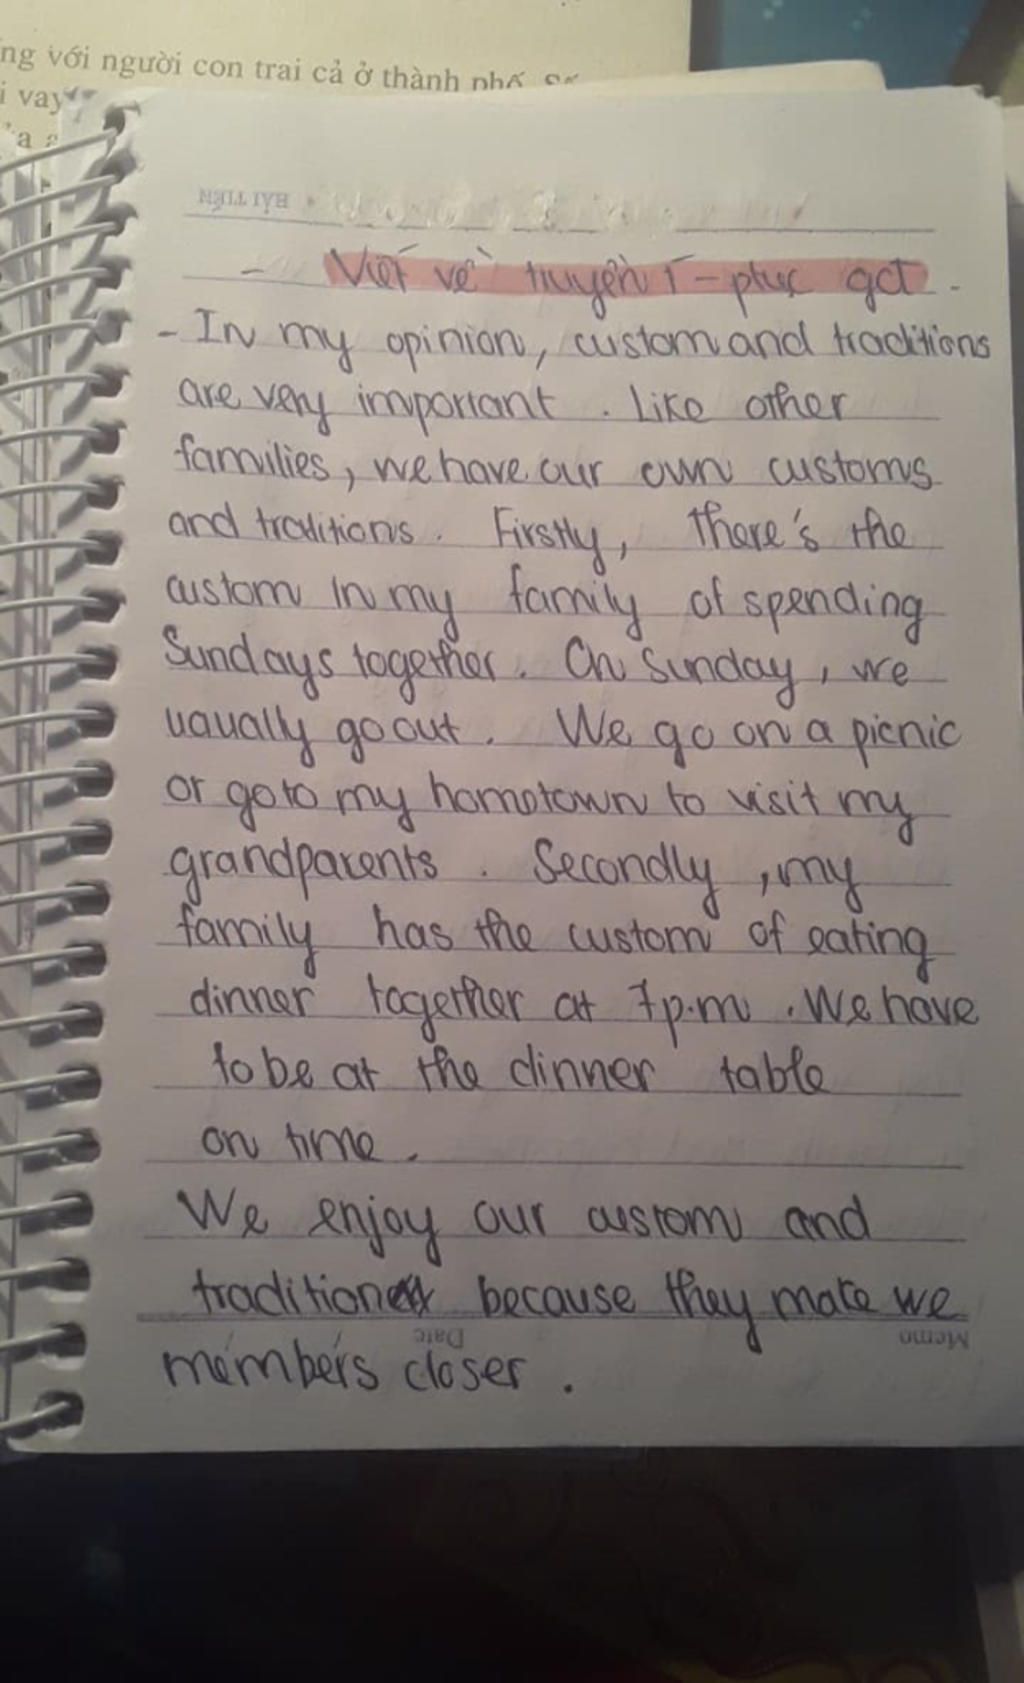 ng với người con trai cả ở thành phố
i vay
BÀI TIẾN
- Viết về truyền T - phục gđ.
- In my opinion, custom and traditions
are very important. Like other
families, we have our own customs
and traditions. Firstly, there's the
custom in my family of spending
Sundays together. On Sunday, we
uaually go out. We go on a picnic
or go to my hometown to visit my
grandparents. Secondly, my
family has the custom of eating
dinner together at 7p.m. We have
to be at the dinner table
on time.
We enjoy our custom and
tradition because they make we
members closer.
Memo Date